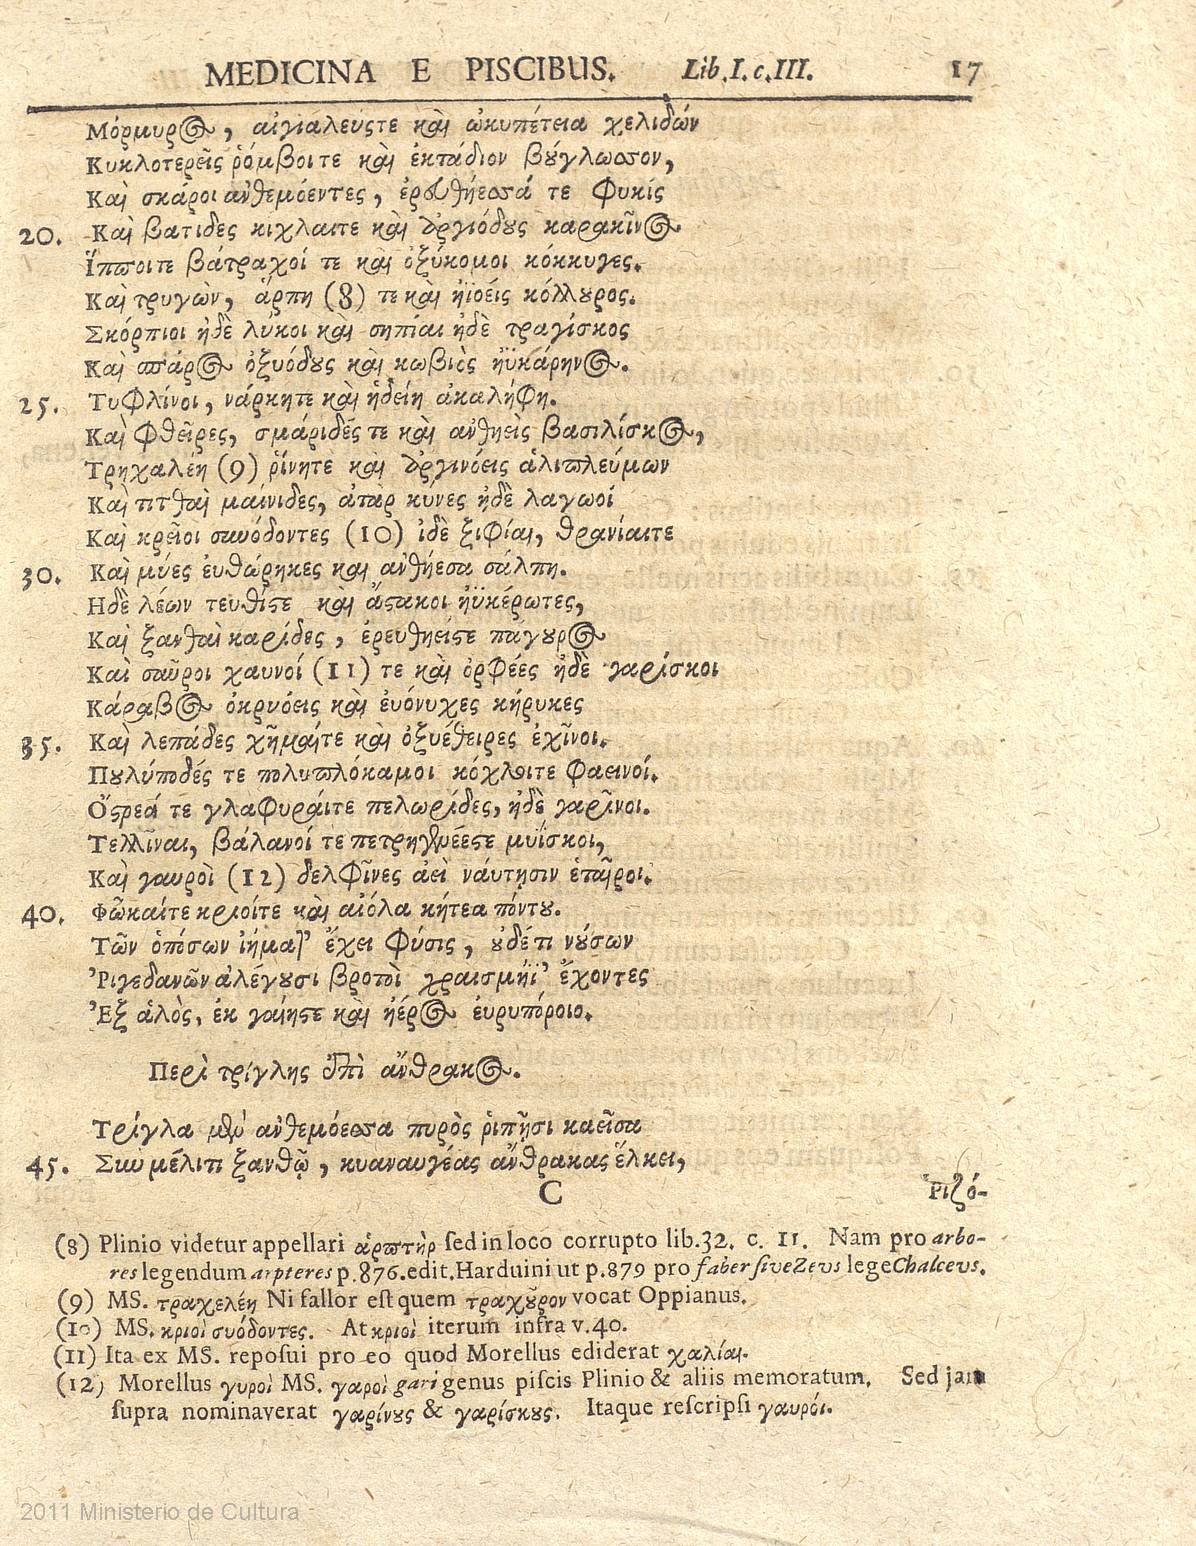 MEDICINA E PISCIBUS. Lib.I.c.III. 17
Μόρμυρος, αἰγιαλεύςτε καὶ ὠκυπέτεια χελιδών
Κυκλοτερεῖς ῥόμβοιτε καὶ ἐκτάδιον βούγλωσσον,
Καὶ σκάροι ἀνθεμόεντες, ἐρευθήεσσά τε Φυκίς
20. Καὶ βατίδες κιχλαιτε καὶ ὀργιόδους καρακῖνος.
Ἵπποιτε βάτραχοί τε καὶ ὀξύκομοι κόκκυγες.
Καὶ τρυγὼν, ἁρπη (8) τε καὶ ἠϊοέις κόλλουρος.
Σκόρπιοι ἠδὲ λύκοι καὶ σηπίαι ἠδὲ τραγίσκος
Καὶ σπάρος ὀξυόδους καὶ κωβιὸς ἠϋκάρηνος.
25. Τυφλίνοι, νάρκητε καὶ ἡδείη ἀκαλήφη.
Καὶ Φθεῖρες, σμάριδές τε καὶ ἀνθηεὶς βασιλίσκος,
Τρηχαλέη (9) ῥίνητε καὶ ὀργινόεις ἁλιπλεύμων
Καὶ τιτθαὶ μαίνιδες, ἀτὰρ κύνες ἠδὲ λαγωοί
Καὶ κρεῖοι συνόδοντες (10) ἰδὲ ξιφίαι, θρανίαιτε
30. Καὶ μύες ἐυθώρηκες καὶ ἀνθήεσα σάλπη.
Ηδὲ λέων τευθίςτε καὶ ἄςακοι ἠϋκέρωτες,
Καὶ ξανθαὶ καρίδες, ἐρευθηείςτε πάγουρος
Καὶ σαῦροι χαυνοί (11) τε καὶ ὀρφέες ἠδὲ γαρίσκοι
Κάραβος ὀκρυόεις καὶ ἐυόνυχες κήρυκες
35. Καὶ λεπάδες χῆμαίτε καὶ ὀξυέθειρες ἐχῖνοι.
Πουλύποδές τε πολυπλόκαμοι κόχλοιτε φαεινοί.
Ὄςρεά τε γλαφυράιτε πελωρίδες, ἠδὲ γαρῖνοι.
Τελλῖναι, βάλανοί τε πετρηγενέεςτε μυΐσκοι,
Καὶ γαυροὶ (12) δελφῖνες ἀεὶ ναύτησιν ἑταῖροι.
40. Φῶκαίτε κριοίτε καὶ αἰόλα κήτεα πόντου.
Τῶν ὁπόσων ἰήματ' ἔχει φύσις, οὐδέτι νούσων
Ῥιγεδανῶν ἀλέγουσι βροτοὶ χραισμήϊ' ἔχοντες
Ἐξ ἁλὸς, ἐκ γαίηςτε καὶ ἠέρος ἐυρυπόροιο.
Περὶ τρίγλης ἐπὶ ἄνθρακος.
Τρίγλα μὲν ἀνθεμόεσσα πυρὸς ῥιπῇσι καεῖσα
45. Σὺν μέλιτι ξανθῷ, κυαναυγέας ἄνθρακας ἕλκει,
C Ῥιζό-
(8) Plinio videtur appellari ἁρπτὴρ sed in loco corrupto lib.32. c. 11. Nam pro arbo-
res legendum arpteres p.876.edit.Harduini ut p.879 pro faber sive Zevs lege Chalcevs.
(9) MS. τραχελέη Ni fallor est quem τραχοῦρον vocat Oppianus.
(10) MS. κριοὶ συόδοντες. At κριοὶ iterum infra v.40.
(11) Ita ex MS. reposui pro eo quod Morellus ediderat χαλίαι.
(12) Morellus γυροὶ MS. γαροὶ gari genus piscis Plinio & aliis memoratum. Sed jam
supra nominaverat γαρίνους & γαρίσκους. Itaque rescripsi γαυρόι.
2011 Ministerio de Cultura